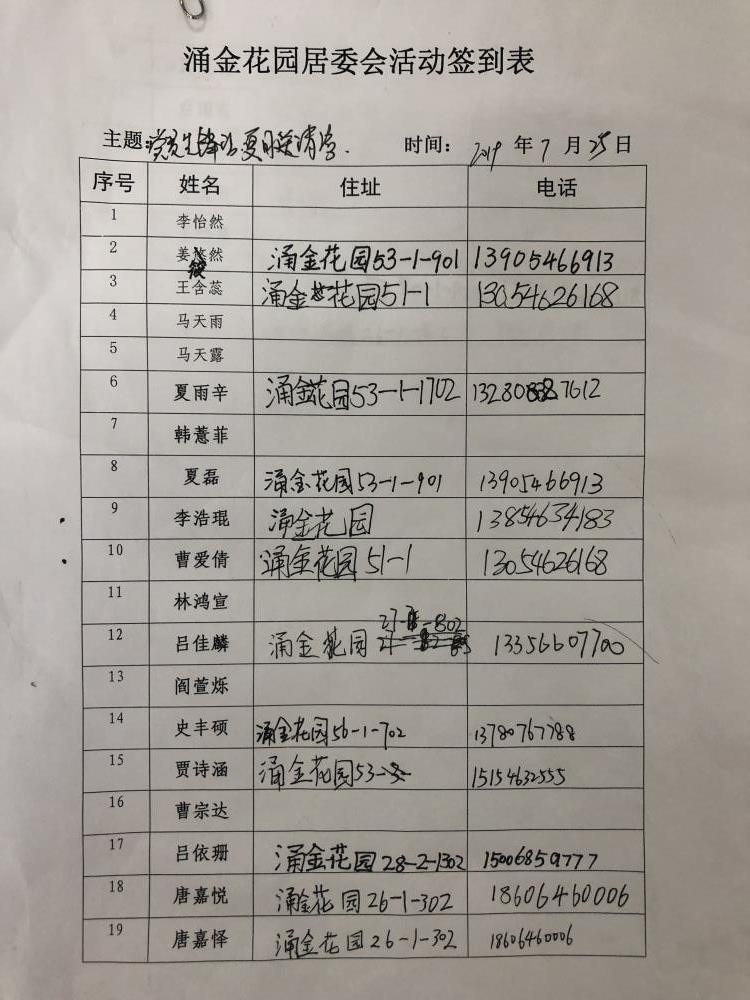 涌金花园居委会活动签到表
主题:党员先锋 夏日 清 时间: 2019 年 7 月 25 日
序号 姓名 住址 电话
1 李怡然
2 姜筱然 涌金花园53-1-901 13905466913
3 王含蕊 涌金花园51-1 13054626168
4 马天雨
5 马天露
6 夏雨辛 涌金花园53-1-1702 132808887612
7 韩薏菲
8 夏磊 涌金花园53-1-901 13905466913
9 李浩琨 涌金花园 13854634183
10 曹爱倩 涌金花园51-1 13054626168
11 林鸿宣
12 吕佳麟 涌金花园 13356607700
13 阎萱烁
14 史丰硕 涌金花园56-1-702 13780767788
15 贾诗涵 涌金花园53 15154632555
16 曹宗达
17 吕依珊 涌金花园28-2-1302 15006859777
18 唐嘉悦 涌金花园26-1-302 18606460006
19 唐嘉怿 涌金花园26-1-302 18606460006